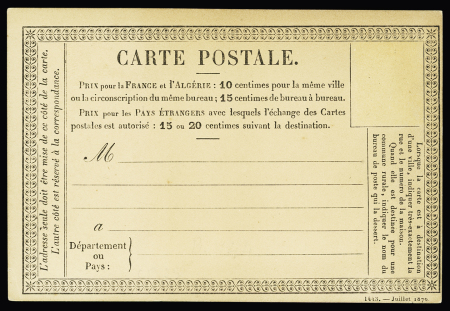 CARTE POSTALE.
PRIX pour la FRANCE et l'ALGÉRIE : 10 centimes pour la même ville
ou la circonscription du même bureau ; 15 centimes de bureau à bureau.
PRIX pour les PAYS ÉTRANGERS avec lesquels l'échange des Cartes
postales est autorisé : 15 ou 20 centimes suivant la destination.
M
a
Département
ou
Pays :
L'adresse seule doit être mise de ce côté de la carte.
L'autre côté est réservé à la correspondance.
Lorsque la carte est à destination
d'une ville, indiquer très-exactement la
rue et le numéro de la maison.
Quand elle est destinée pour une
commune rurale, indiquer le nom du
bureau de poste qui la dessert.
1443. — Juillet 1876.